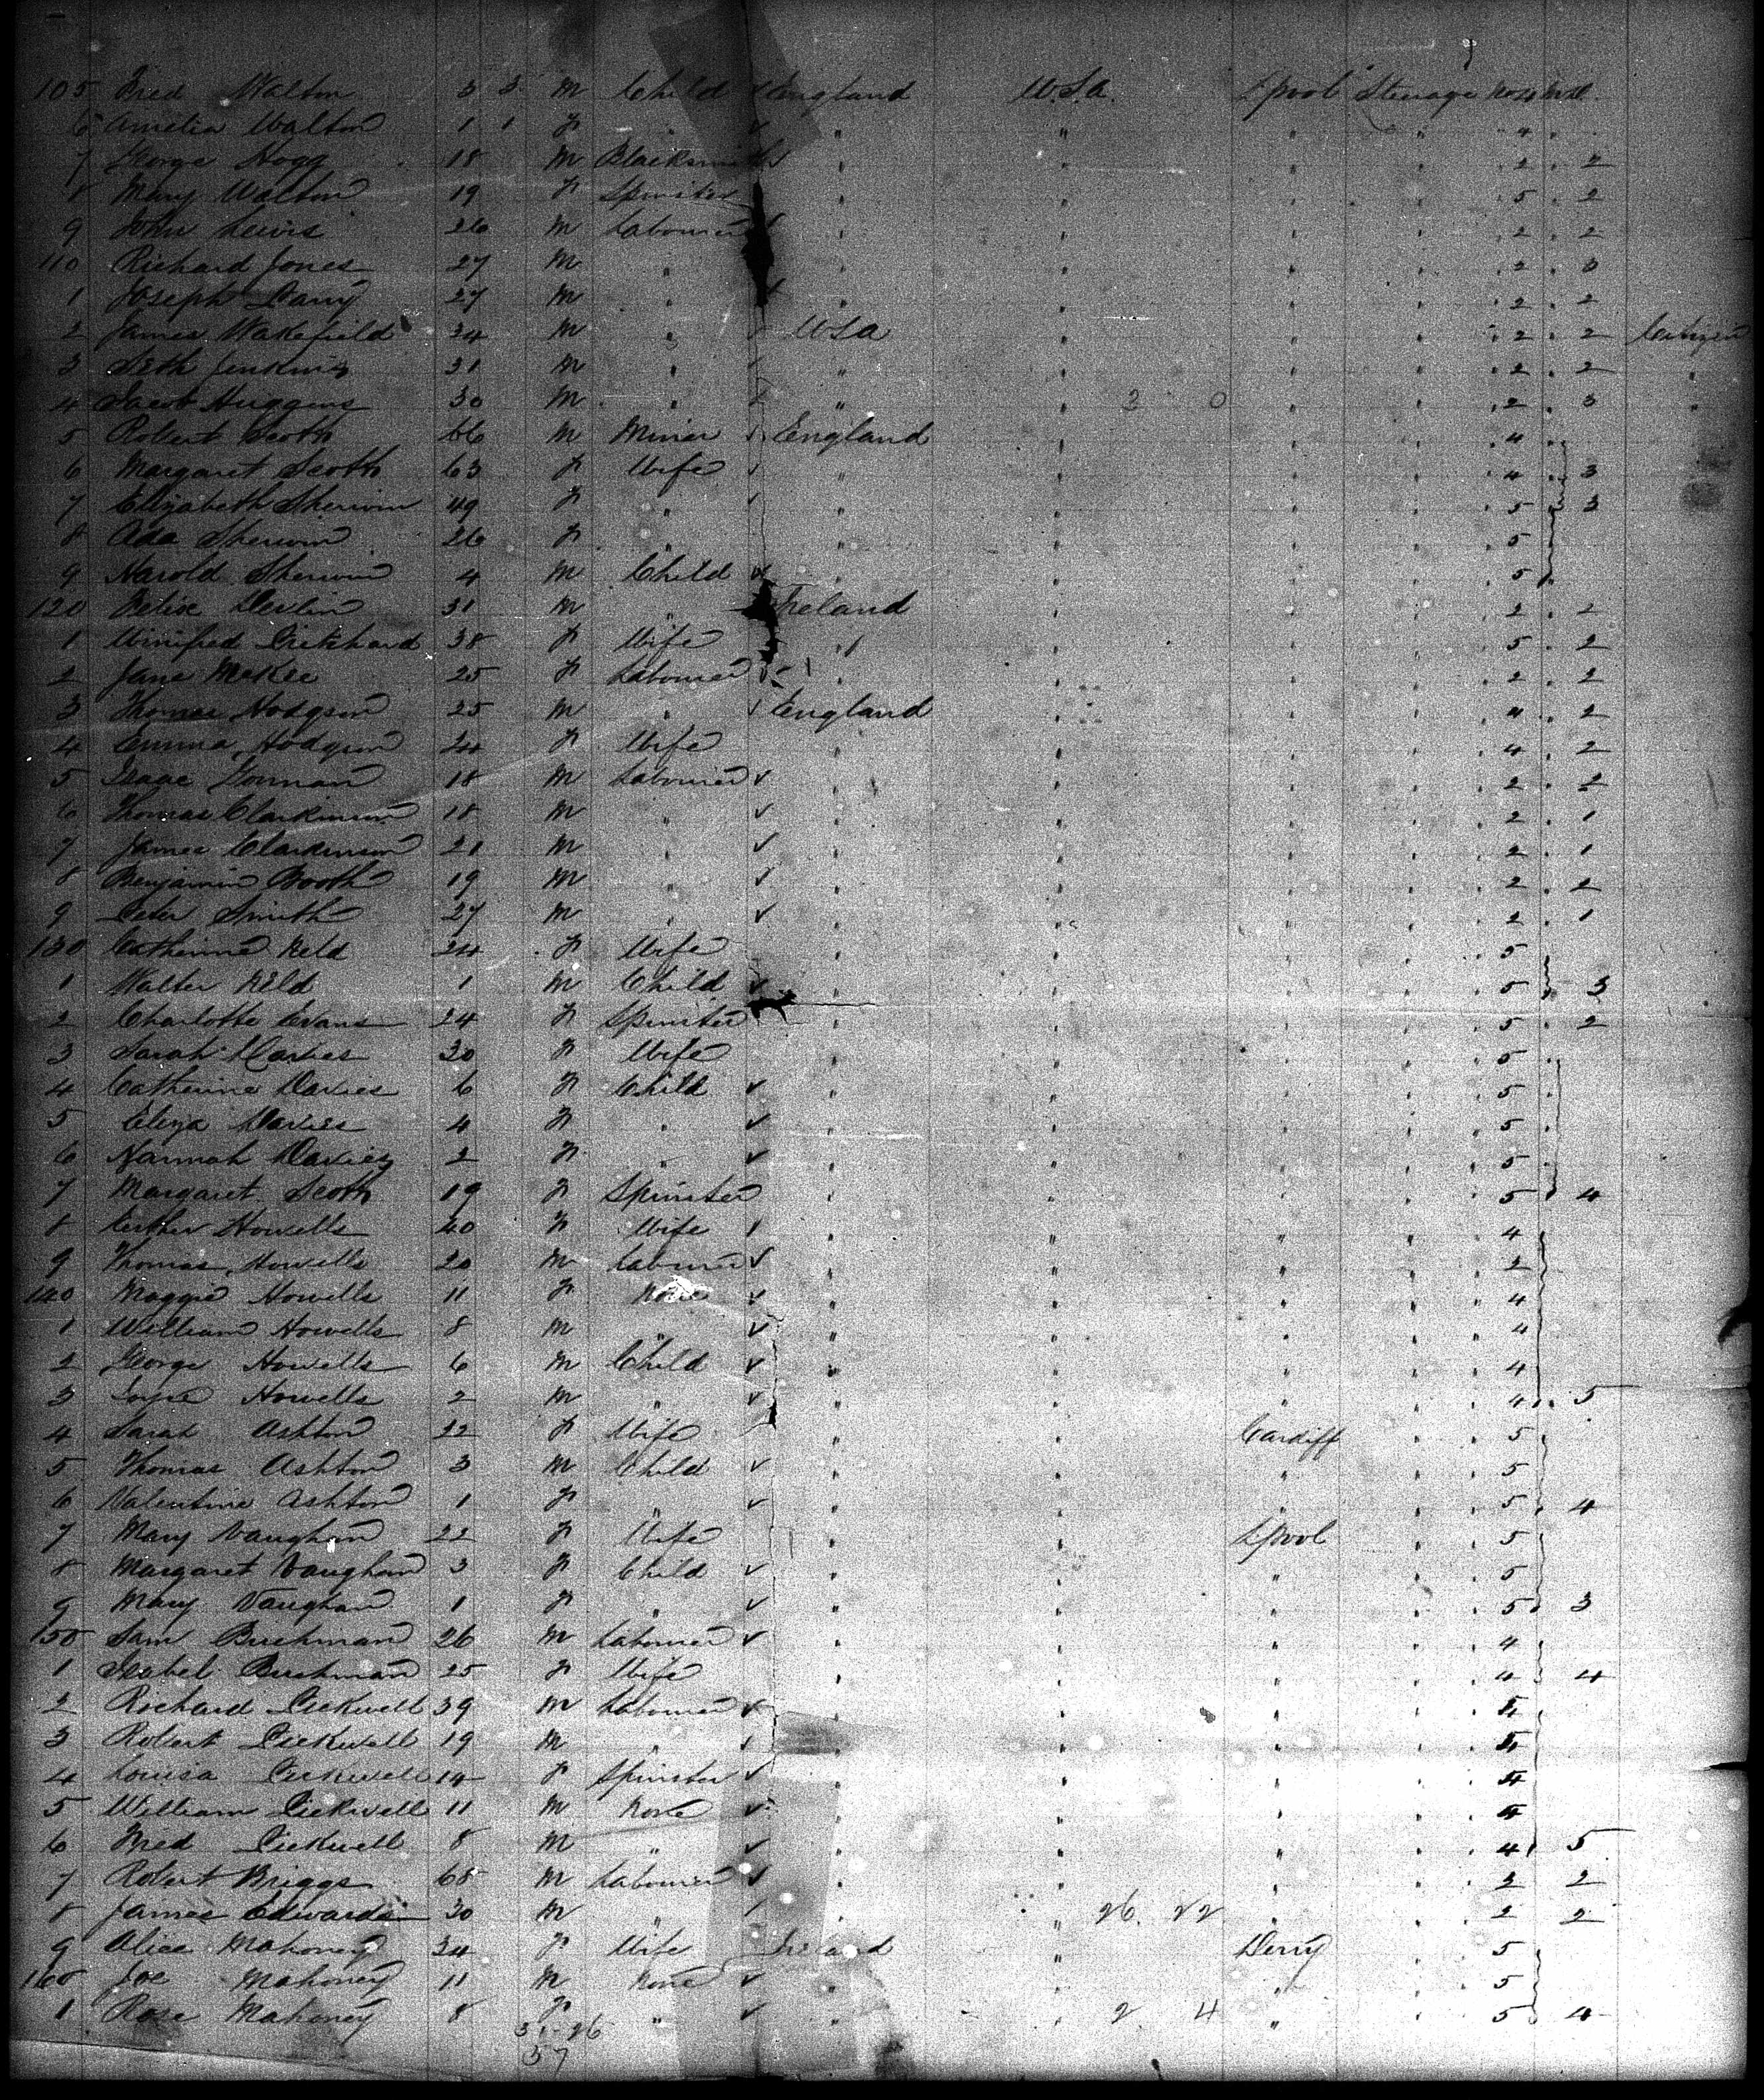 105 Fred Walton 3 3 M Child England U.S.A. L'pool Steerage
6 Amelia Walton 1 1 F " " " " " 4
7 George Hogg 18 M Blacksmith " " " " 2 2
8 Mary Walton 19 F Spinster " " " " 5 2
9 John Lewis 26 M Labourer " " " " 2 2
110 Richard Jones 27 M " " " " " 2 3
1 Joseph 27 M " " " " " 2 2
2 James Wakefield 34 M " USA " " " 2 2 Citizen
3 Seth Jenkins 31 M " " " " " 2 2 "
4 Jacob Huggins 30 M " " " 2 0 " " 2 3 "
5 Robert Scott 66 M Miner England " " " 4
6 Margaret Scott 63 F Wife " " " " 4 3
7 Elizabeth Sherwin 49 F " " " " " 5 3
8 Ada Sherwin 26 F " " " " " 5
9 Harold Sherwin 4 M Child " " " " 5
120 Felix Devlin 31 M " Ireland " " " 2 2
1 Winifred 38 F Wife " " " " 5 2
2 Jane McKee 25 F Labourer " " " " 2 2
3 Thomas Hodgson 25 M " England " " " 4 2
4 Emma Hodgson 24 F Wife " " " " 4 2
5 Isaac Gorman 18 M Labourer " " " " 2 2
6 Thomas Clarkinson 18 M " " " " " 2 1
7 James Clarkinson 21 M " " " " " 2 1
8 Benjamin Booth 19 M " " " " " 2 2
9 Peter Smith 27 M " " " " " 2 1
130 Catherine Reld 24 F Wife " " " " 5
1 Walter Reld 1 M Child " " " " 5 3
2 Charlotte Evans 24 F Spinster " " " " 5 2
3 Sarah Davies 30 F Wife " " " " 5
4 Catherine Davies 6 F Child " " " " 5
5 Eliza Davies 4 F " " " " " 5
6 Hannah Davies 2 F " " " " " 5
7 Margaret Scott 19 F Spinster " " " " 5 4
8 Esther Howells 40 F Wife " " " " 4
9 Thomas Howells 20 M Labourer " " " " 2
140 Maggie Howells 11 F None " " " " 4
1 William Howells 8 M " " " " " 4
2 George Howells 6 M Child " " " " 4
3 Howells 2 M " " " " " 4 5
4 Sarah Ashton 22 F Wife " " Cardiff " 5
5 Thomas Ashton 3 M Child " " " " 5
6 Valentine Ashton 1 F " " " " " 5 4
7 Mary Vaughan 22 F Wife " " L'pool " 5
8 Margaret Vaughan 3 F Child " " " " 5
9 Mary Vaughan 1 F " " " " " 5 3
150 Sam Buckman 26 M Labourer " " " " 4
1 Isabel Buckman 25 F Wife " " " " 4 4
2 Richard Pickwell 39 M Labourer " " " "
3 Robert Pickwell 19 M " " " " "
4 Louisa Pickwell 14 F Spinster " " " "
5 William Pickwell 11 M None " " " "
6 Fred Pickwell 8 M " " " " " 4 5
7 Robert Briggs 65 M Labourer " " " " 2 2
8 James Edwards 30 M " " " 26 22 " " 2 2
9 Alice Mahoney 34 F Wife Ireland " Derry " 5
160 Joe Mahoney 11 M None " " " " 5
1 Rose Mahoney 8 F " " " 2 4 " " 5 4
31-26
57